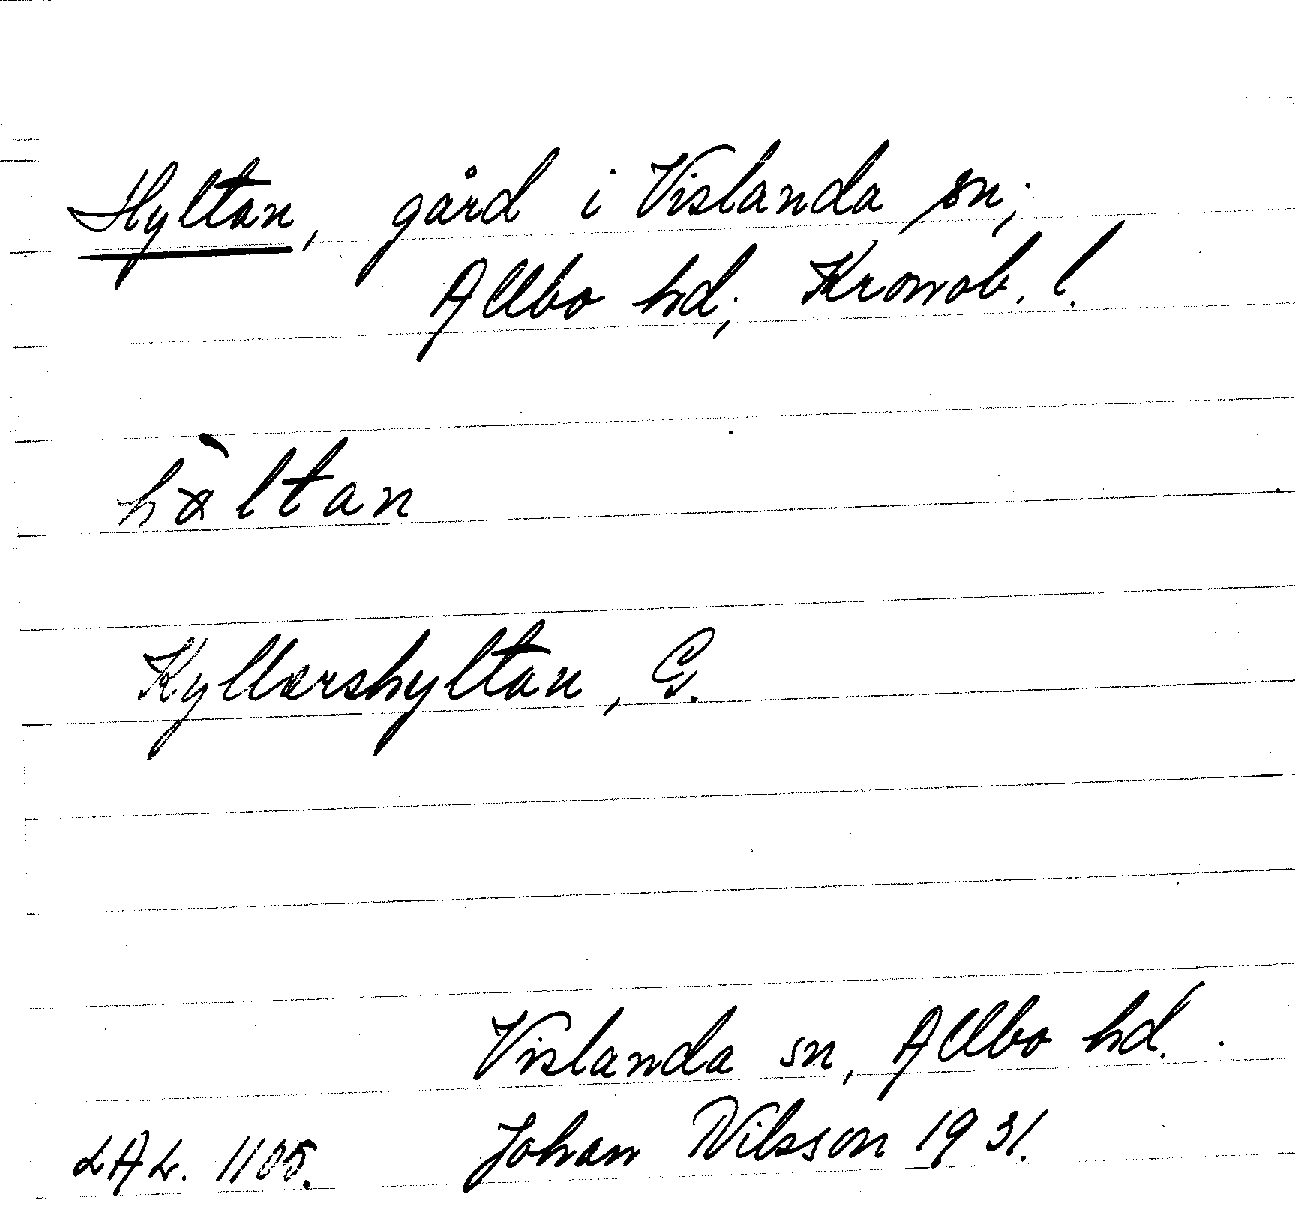 Hyltan, gård i Vislanda sn;
Allbo hd; Kronob. l.
hàltan
Kyllershyltan, G.
Vislanda sn, Allbo hd.
LAL. 1105. Johan Nilsson 1931.